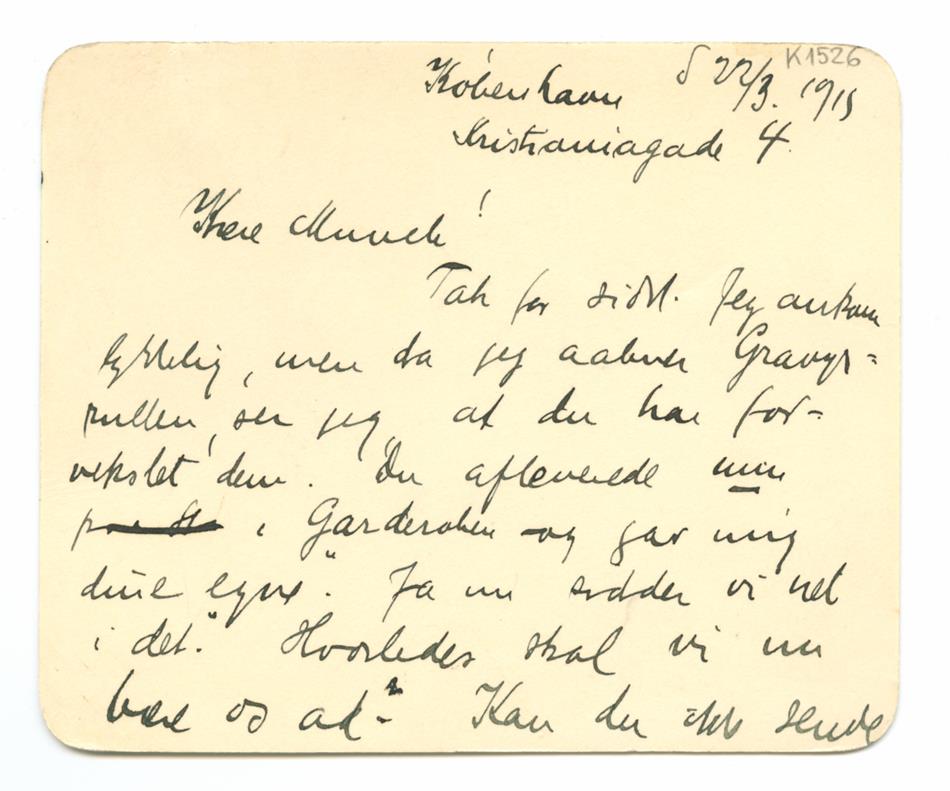 K1526
København d 22/3. 1915
Kristianiagade 4.
Kære Munch!
Tak for sidst. Jeg ankom
lykkelig, men da jeg aabner Gravyr=
rullen, ser jeg, at du har for=
vekslet dem. Du afleverede min
i Garderoben og gav mig
dine egne". Ja nu sidder vi net
i det." Hvorledes skal vi nu
bære os ad? Kan du ikke sende